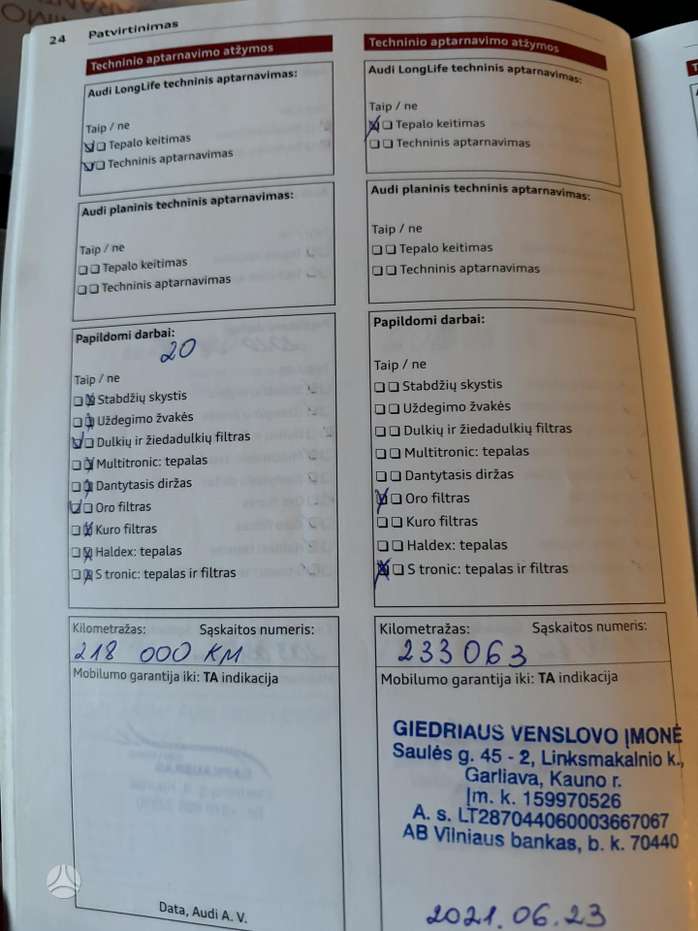 24 Patvirtinimas
Techninio aptarnavimo atžymos
Audi LongLife techninis aptarnavimas:
Taip / ne
Tepalo keitimas
Techninis aptarnavimas
Audi planinis techninis aptarnavimas:
Taip / ne
Tepalo keitimas
Techninis aptarnavimas
Papildomi darbai:
20
Taip / ne
Stabdžių skystis
Uždegimo žvakės
Dulkių ir žiedadulkių filtras
Multitronic: tepalas
Dantytasis diržas
Oro filtras
Kuro filtras
Haldex: tepalas
S tronic: tepalas ir filtras
Kilometražas: Sąskaitos numeris:
218 000 KM
Mobilumo garantija iki: TA indikacija
Data, Audi A. V.
Techninio aptarnavimo atžymos
Audi LongLife techninis aptarnavimas:
Taip / ne
Tepalo keitimas
Techninis aptarnavimas
Audi planinis techninis aptarnavimas:
Taip / ne
Tepalo keitimas
Techninis aptarnavimas
Papildomi darbai:
Taip / ne
Stabdžių skystis
Uždegimo žvakės
Dulkių ir žiedadulkių filtras
Multitronic: tepalas
Dantytasis diržas
Oro filtras
Kuro filtras
Haldex: tepalas
S tronic: tepalas ir filtras
Kilometražas: Sąskaitos numeris:
233063
Mobilumo garantija iki: TA indikacija
GIEDRIAUS VENSLOVO ĮMONĖ
Saulės g. 45 - 2, Linksmakalnio k.,
Garliava, Kauno r.
Įm. k. 159970526
A. s. LT287044060003667067
AB Vilniaus bankas, b. k. 70440
2021.06.23